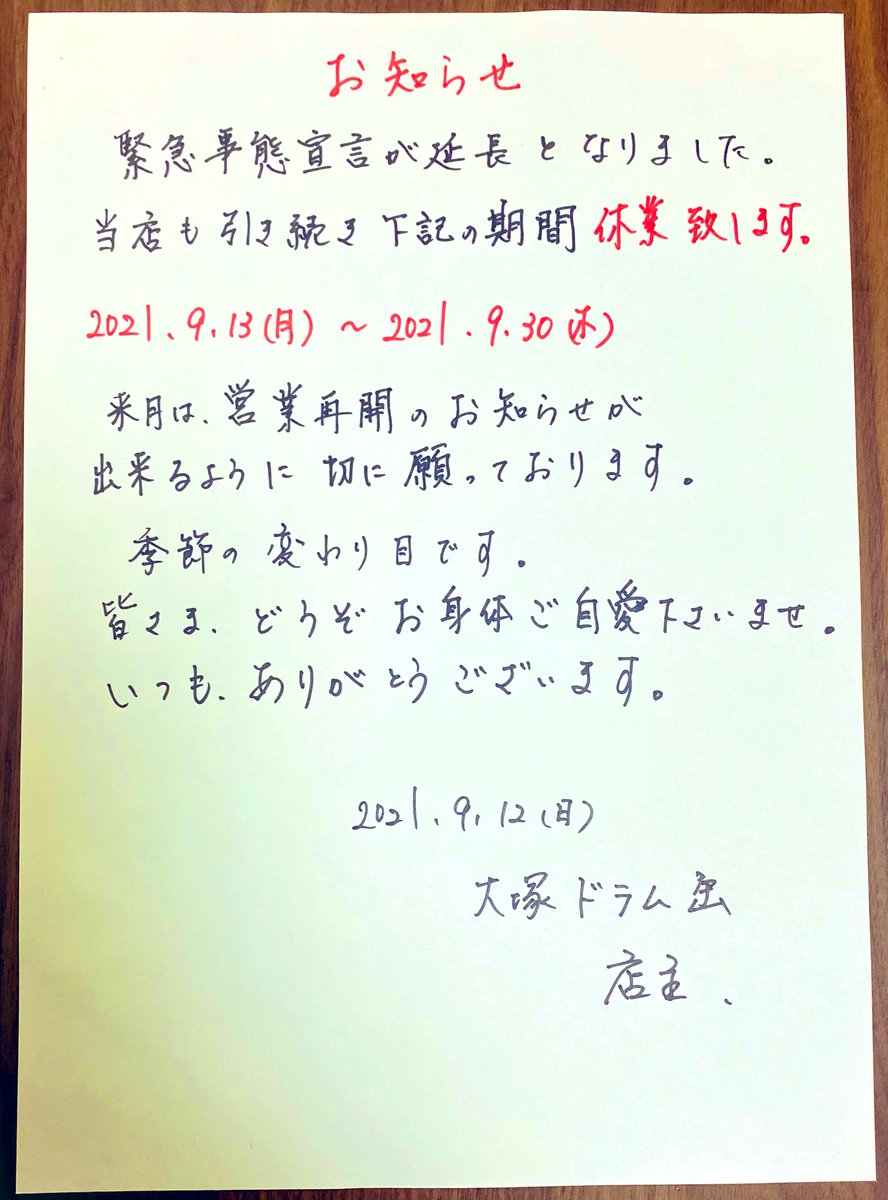 お知らせ
緊急事態宣言が延長となりました。
当店も引き続き下記の期間休業致します。
2021.9.13(月)～2021.9.30(木)
来月は、営業再開のお知らせが
出来るように切に願っております。
季節の変わり目です。
皆さま、どうぞお身体ご自愛下さいませ。
いつも、ありがとうございます。
2021.9.12(日)
大塚ドラム缶
店主、